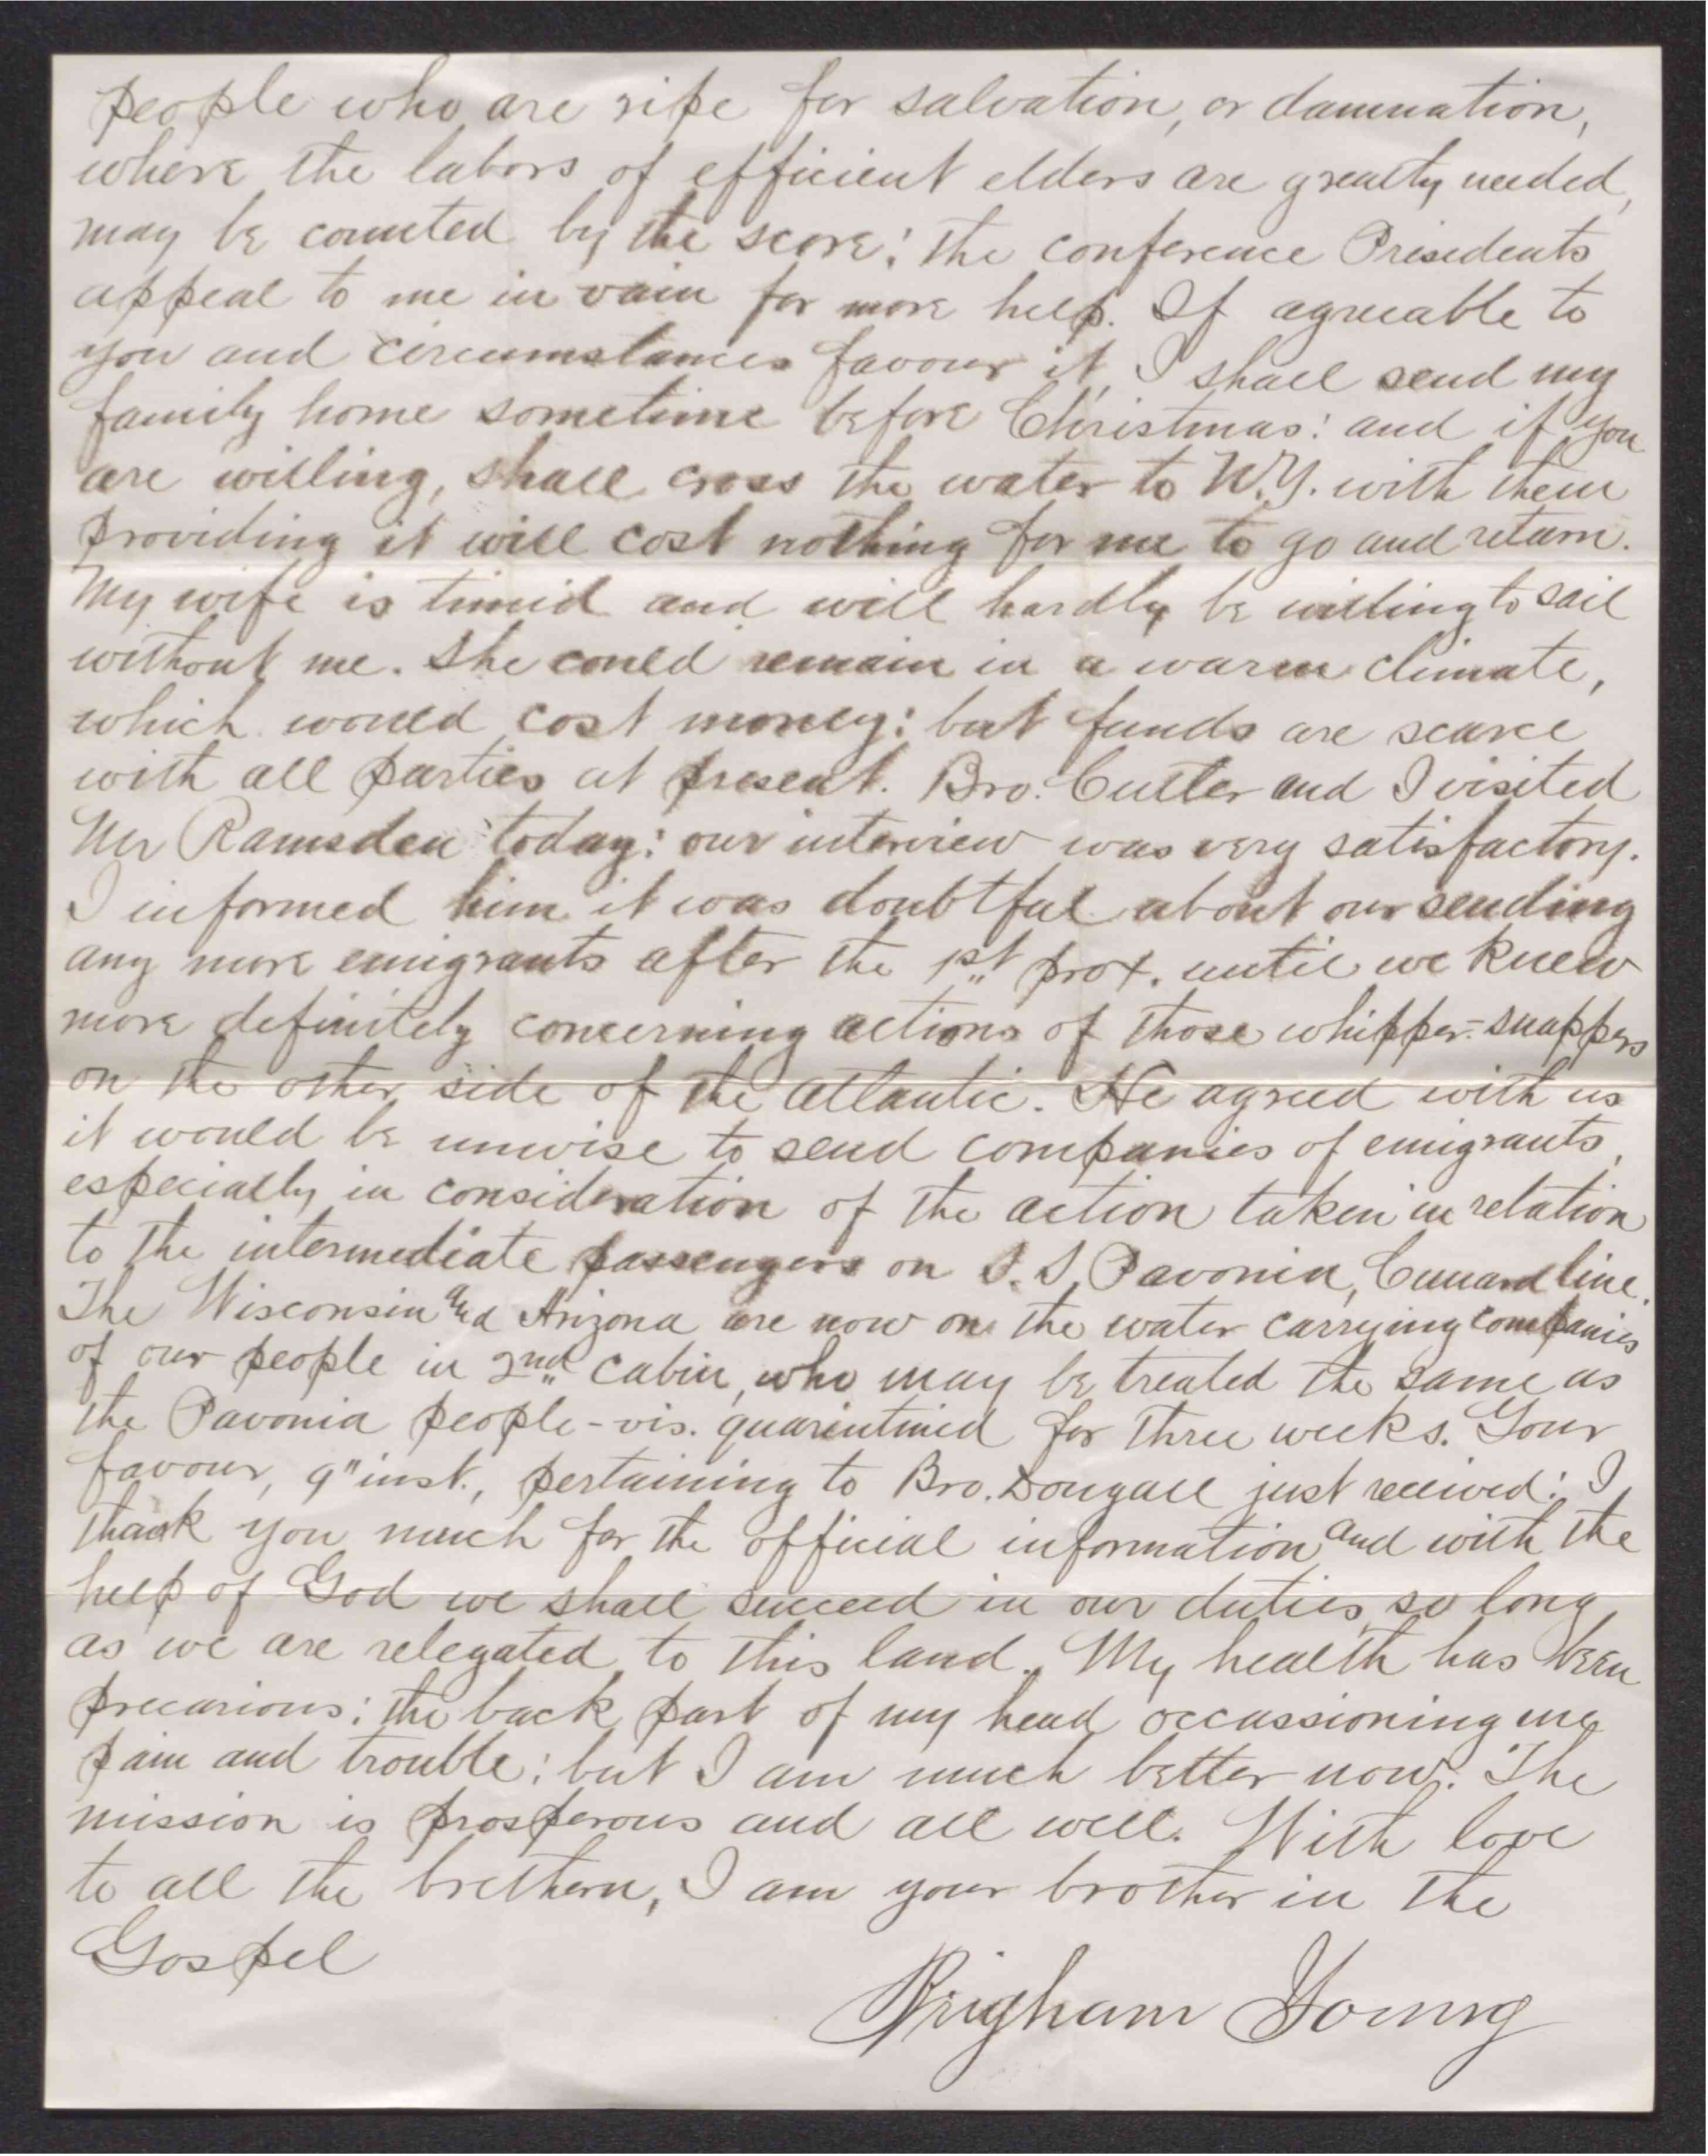 people who are ripe for salvation, or damnation,
where the labors of efficient elders are greatly needed,
may be counted by the score; the conference Presidents
appeal to me in vain for more help. If agreeable to
you and circumstances favour it, I shall send my
family home sometime before Christmas: and if you
are willing, shall cross the water to N.Y. with them
providing it will cost nothing for me to go and return.
My wife is timid and will hardly be willing to sail
without me. She could remain in a warm climate,
which would cost money: but funds are scarce
with all parties at present. Bro. Cutler and I visited
Mr Ramsden today: our interview was very satisfactory.
I informed him it was doubtful about our sending
any more emigrants after the 1st prox. until we knew
more definitely concerning actions of those whipper-snappers
on the other side of the atlantic. He agreed with us
it would be unwise to send companies of emigrants,
especially in consideration of the action taken in relation
to the intermediate passengers on S.S. Pavonia, Cunard line.
The Wisconsin and Arizona are now on the water carrying companies
of our people in 2nd cabin, who may be treated the same as
the Pavonia people - vis. quarintined for three weeks. Your
favour, 9" inst., pertaining to Bro. Dougall just received: I
thank you much for the official information and with the
help of God we shall succeed in our duties, so long
as we are relegated to this land. My health has been
precarious; the back part of my head occassioning me
pain and trouble; but I am much better now. The
mission is prosperous and all well. With love
to all the brethern, I am your brother in the
Gospel
Brigham Young